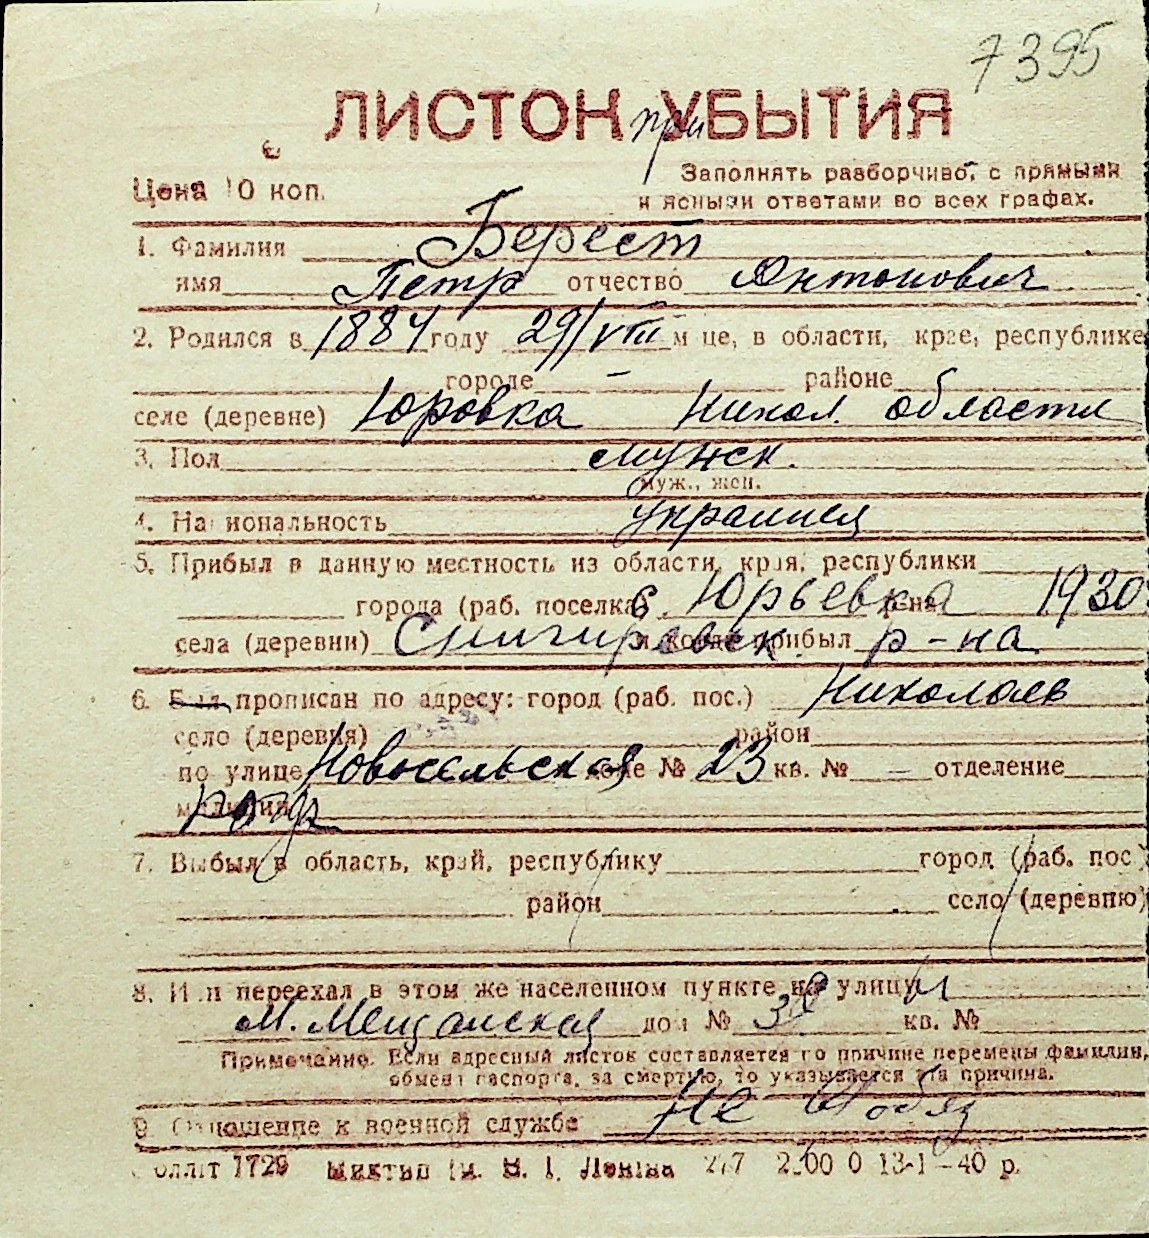 7395
ЛИСТОК УБЫТИЯ
при
Цена 10 коп.
Заполнять разборчиво, с прямыми
и ясными ответами во всех графах.
1. Фамилия Берест
имя Петр отчество Антонович
2. Родился в 1884 году 29/VIII м-це, в области, крае, республике
городе – районе
селе (деревне) Юровка Никол. области
3. Пол мужск.
муж., жен.
4. Национальность
5. Прибыл в данную местность из области, края, республики
города (раб. поселка) с Юрьевка 1930
села (деревни) Снигиревск. и когда прибыл р-на
6. Был прописан по адресу: город (раб. пос.) Николаев
село (деревня) район
по улице Новосельская доме № 23 кв. № – отделение
милиции
7. Выбыл в область, край, республику город (раб. пос.)
район село (деревню)
8. Или переехал в этом же населенном пункте на улицу
М. Мещанская дом № 38 кв. №
Примечание. Если адресный листок составляется по причине перемены фамилии,
обмена паспорта, за смертью, то указывается эта причина.
9. Отношение к военной службе не
1729 Миктип ім. В. І. Леніна 13-1-40 р.